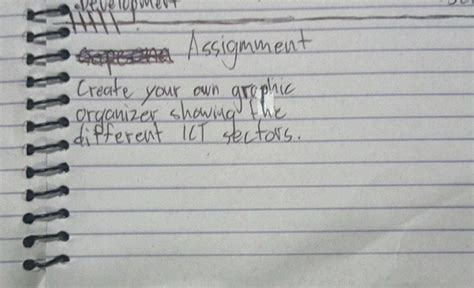 Development
Assignment
Create your own graphic
organizer showing the
different ICT sectors.